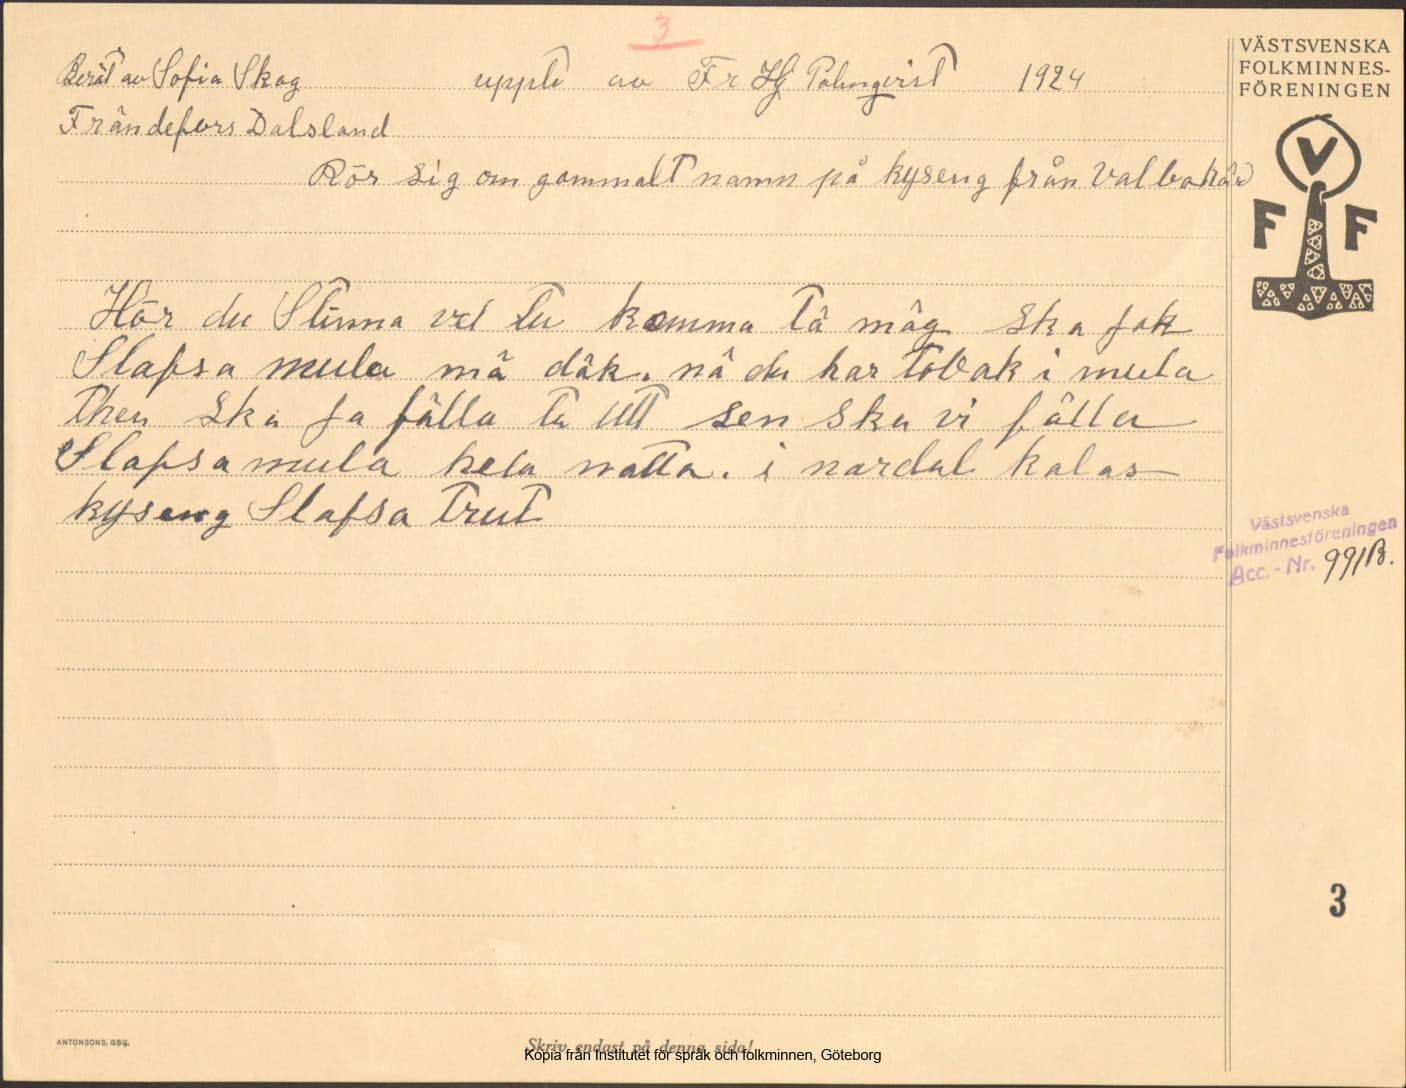 3
Berät av Sofia Skog uppte av Fr Hj Palmqvist 1924
Frändefors Dalsland
Rör sig om gammalt namn på kyseng från Valbohär
Hör du Stinna vel tu komma tä mäg ska jak
Slafsa mula mä däk. nä du har tobak i mula
then ska ja fälla ta utt sen ska vi fälla
Slafsa mula hela natta. i nardal kalas
kyseng Slafsa trut
VÄSTSVENSKA
FOLKMINNES-
FÖRENINGEN
V
F F
Västsvenska
Folkminnesföreningen
Acc.-Nr. 991B.
3
ANTONSONS, GBG.
Skriv endast på denna sida!
Kopia från Institutet för språk och folkminnen, Göteborg